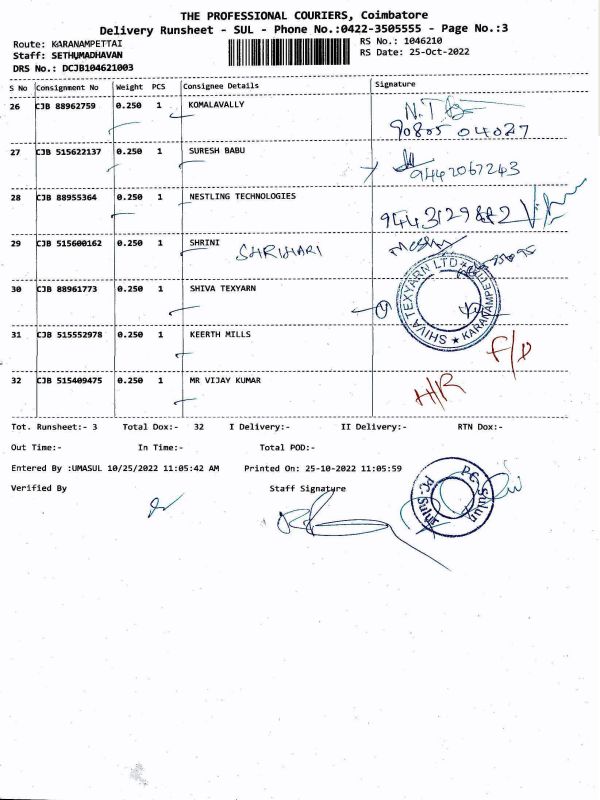 THE PROFESSIONAL COURIERS, Coimbatore
Delivery Runsheet - SUL - Phone No.:0422-3505555 - Page No.:3
Route: KARANAMPETTAI RS No.: 1046210
Staff: SETHUMADHAVAN RS Date: 25-Oct-2022
DRS No.: DCJB104621003
S No Consignment No Weight PCS Consignee Details Signature
26 CJB 88962759 0.250 1 KOMALAVALLY
90805 04027
27 CJB 515622137 0.250 1 SURESH BABU
9442067243
28 CJB 88955364 0.250 1 NESTLING TECHNOLOGIES
9443129882
29 CJB 515600162 0.250 1 SHRINI SHRIHARI
30 CJB 88961773 0.250 1 SHIVA TEXYARN
SHIVA TEXYARN LTD
31 CJB 515552978 0.250 1 KEERTH MILLS F/D
32 CJB 515409475 0.250 1 MR VIJAY KUMAR H/R
Tot. Runsheet:- 3 Total Dox:- 32 I Delivery:- II Delivery:- RTN Dox:-
Out Time:- In Time:- Total POD:-
Entered By :UMASUL 10/25/2022 11:05:42 AM Printed On: 25-10-2022 11:05:59
Verified By Staff Signature
PC-Sulur